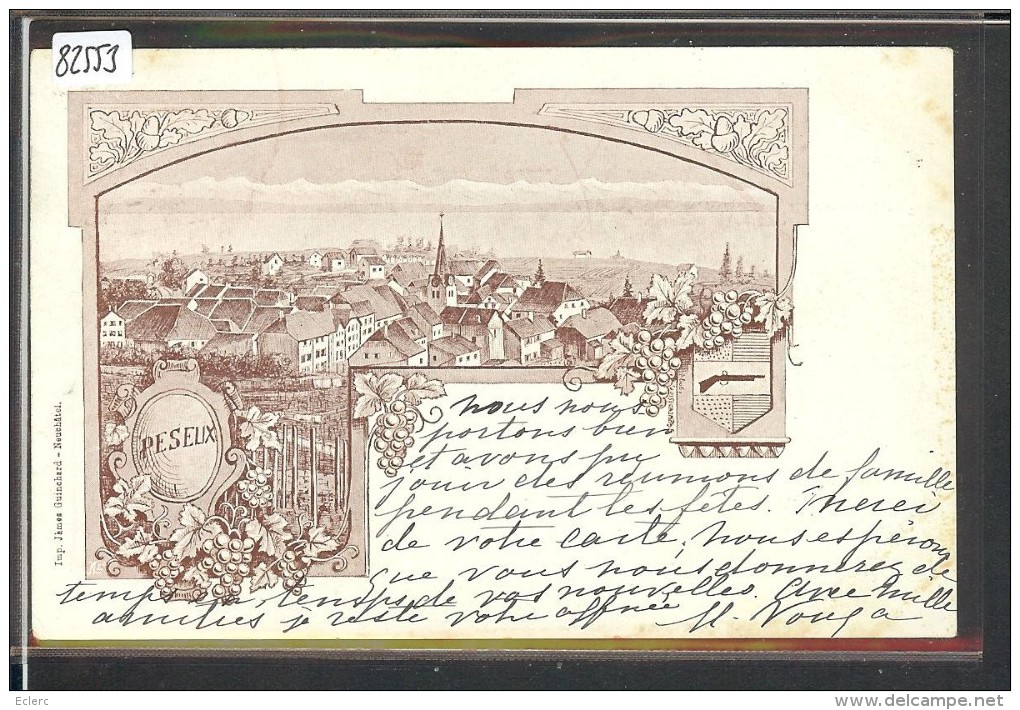 82553
PESEUX
Imp. James Guinchard – Neuchâtel.
nous nous
portons bien
et avons pu
jouir des réunions de famille
pendant les fêtes. Merci
de votre carte. Nous espérons
que vous nous donnerez de
temps en temps de vos nouvelles. Avec mille
amitiés je reste votre affnée M. Vouga
Eclerc
www.delcampe.net